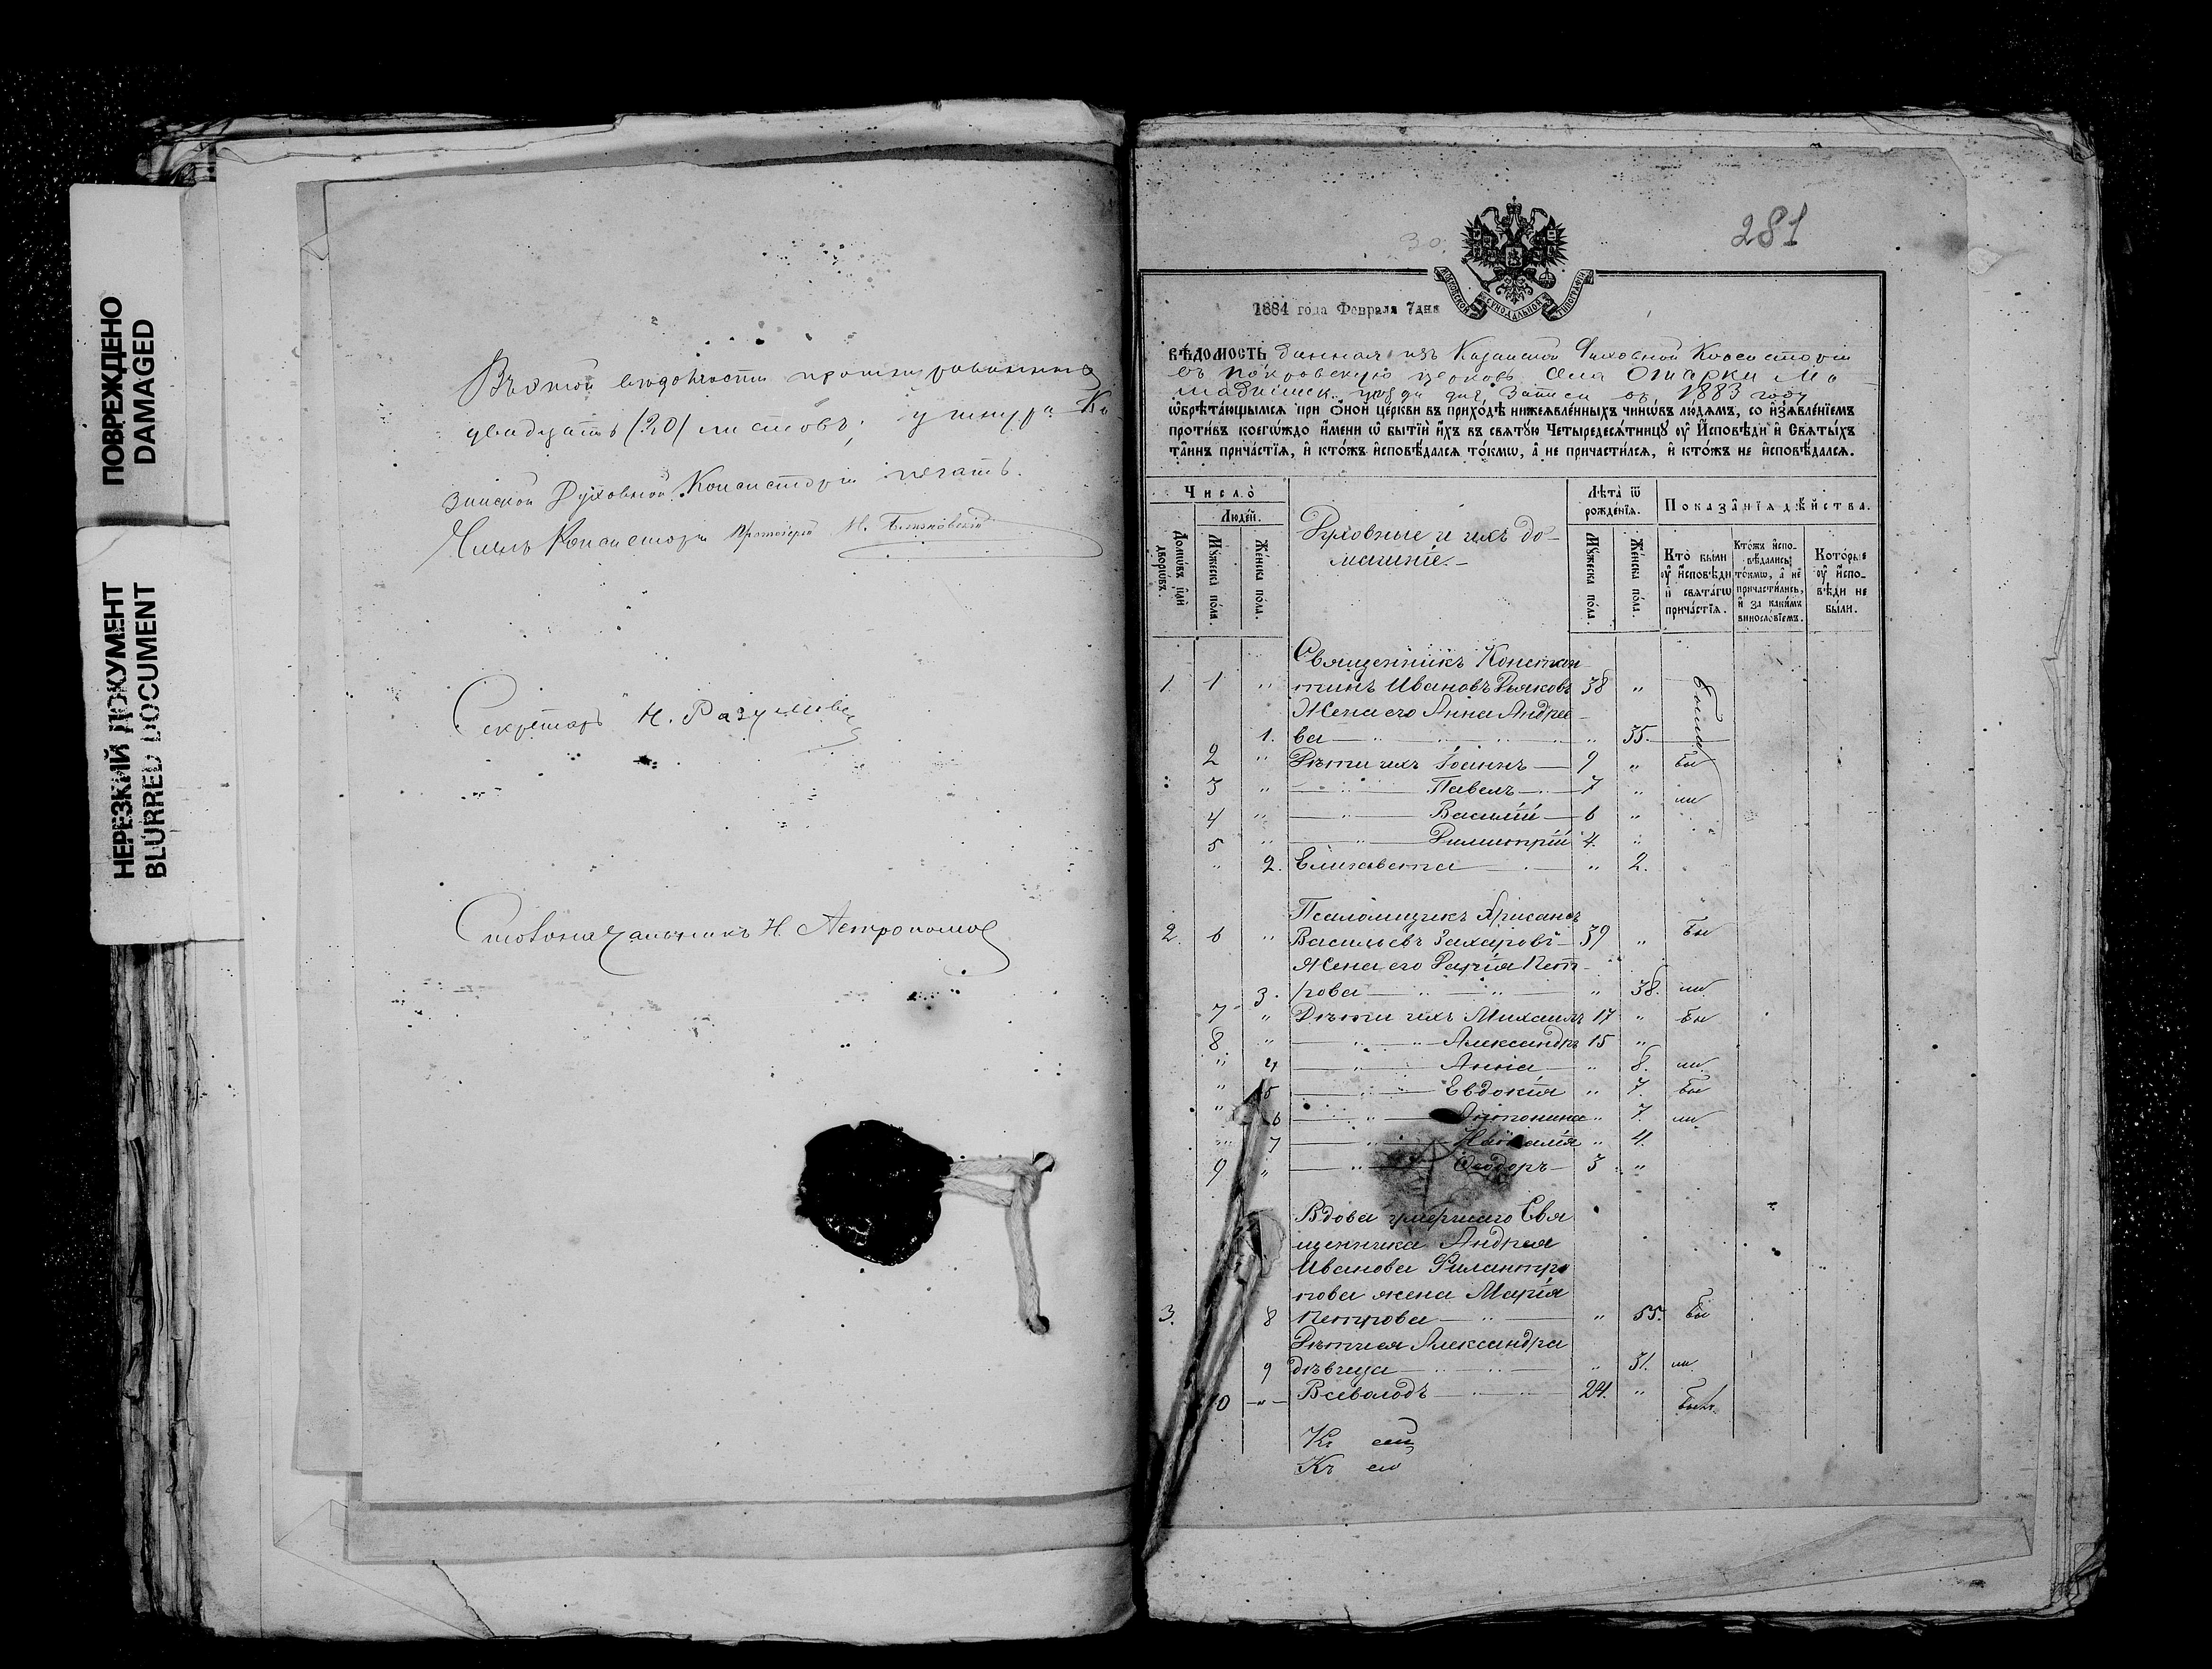 ПОВРЕЖДЕНО
DAMAGED
НЕРЕЗКИЙ ДОКУМЕНТ
BLURRED DOCUMENT
Въ этой ведомости прошнурованныхъ
двадцать (20) листовъ; у шнура Ка-
занской Духовной Консисторіи печать.
Членъ Консисторіи Протоіерей
Секретарь Н. Разумов
Столоначальникъ Н. Астрономов
30.
281
МОСКОВСКОЙ СѴНОДАЛЬНОЙ ТИПОГРАФІИ
1884 года Февраля 7 дня
ВѢДОМОСТЬ данная изъ Казанской Духовной Консисторіи
въ Покровскую церковь села Отарки Ма-
мадышск. уезда для записи въ 1883 году
ѡбрѣта́ющымсѧ при ѻ́ной це́ркви въ прихо́дѣ нижеѧвле́нныхъ чинѡ́въ лю́демъ, со и҆зѧвле́нїемъ
проти́въ коегѡ́ждо и҆́мени ѡ҆ бытїѝ и҆́хъ въ свѧту́ю Четыредесѧ́тницу ᲂу҆ И҆сповѣ́ди и҆ Свѧты́хъ
та̑инъ прича́стїѧ, и҆ кто́жъ и҆сповѣ́далсѧ то́кмѡ, а҆ не причасти́лсѧ, и҆ кто́жъ не и҆сповѣ́далсѧ.
Число̀
Люде́й.
Домѡ́въ и҆лѝ дворѡ́въ.
Мꙋ́жеска по́ла.
Же́нска по́ла.
Духовные и ихъ до-
машніе.
Лѣ́та ѿ рожде́нїѧ.
Мꙋ́жеска по́ла.
Же́нска по́ла.
Показа́нїѧ дѣ́йства.
Кто̀ бы́ли ᲂу҆ и҆сповѣ́ди и҆ свѧта́гѡ прича́стїѧ.
Кто́жъ и҆спо-вѣ́дались то́кмѡ, а҆ не причасти́лись, и҆ за каки́мъ виносло́вїемъ.
Кото́рые ᲂу҆ и҆спо-вѣ́ди не бы́ли.
Священникъ Констан-
1. 1 " тинъ Ивановъ Дьяковъ 38 " были
Жена его Анна Андрее-
1. ва " 35.
2 " Дѣти ихъ Іоаннъ 9 " бы
3 " Павелъ 7 " ли
4 " Василій 6 "
5 " Димитрій 4. "
" 2. Елизавета " 2.
Псаломщикъ Хрисанфъ
2. 6 " Васильевъ Захаровъ 39 " бы
Жена его Дарія Пет-
3. рова " 38. ли
7 " Дѣти ихъ Михаилъ 17 " бы
8 " Александръ 15 "
" 4 Анна " 8. ли
" 5 Евдокія " 7. бы
" 6 Антонина " 7. ли
" 7 Наталія " 4.
9 " Ѳеодоръ 3 "
Вдова умершаго Свя
щенника Андрея
Иванова Филантро
пова жена Марія
3. 8 Петрова " 55. бы
Дѣти ея Александра
9 дѣвица " 31. ли
10 " Всеволодъ 24. " былъ